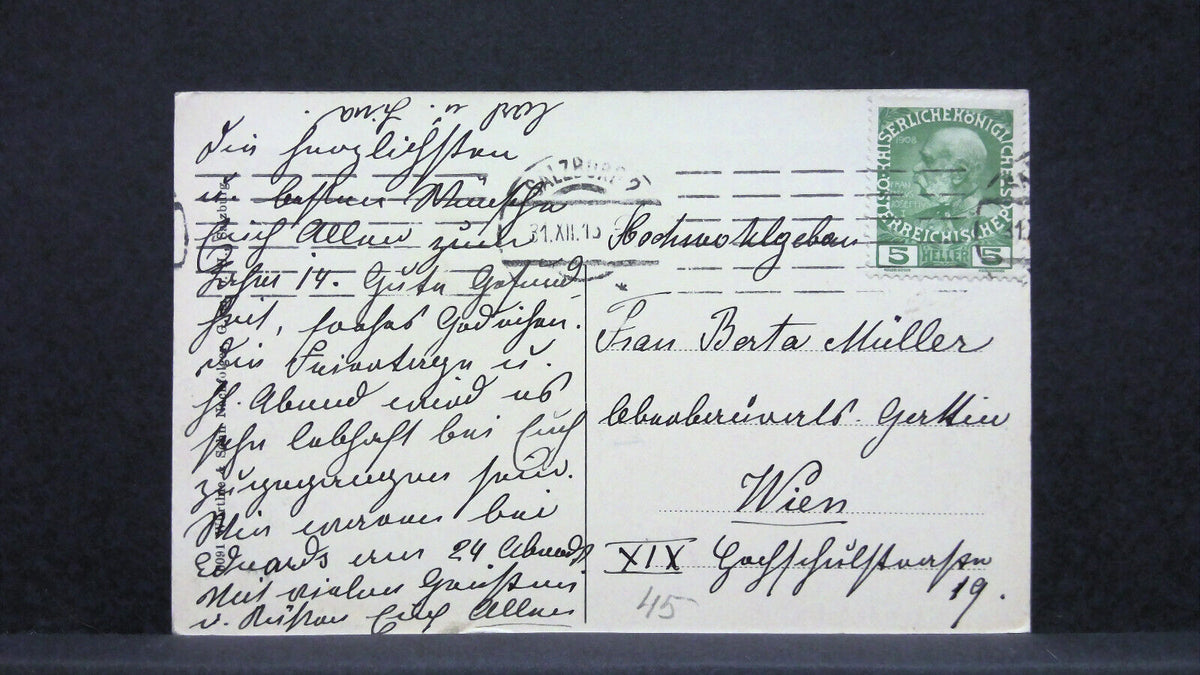 Die herzlichsten
u. besten Wünsche
Euch Allen zum
Jahre 14. Gute Gesund
heit, frohes Gedeihen.
die Feiertage u.
hl. Abend wird es
sehr lebhaft bei Euch
zugegangen sein.
Wir waren bei
Eduards am 24 Abends
Mit vielen Grüßen
u. Küßen Euch Allen
u.
SALZBURG 2
31.XII.13
KAISERLICHE KÖNIGLICHE ÖSTERREICHISCHE POST
1908
5 HELLER 5
Hochwohlgeboren
Frau Berta Müller
Oberbauraths-Gattin
Wien
XIX Hochschulstrasse
19.
45
Würthle & Sohn Nachfolger, Salzburg.